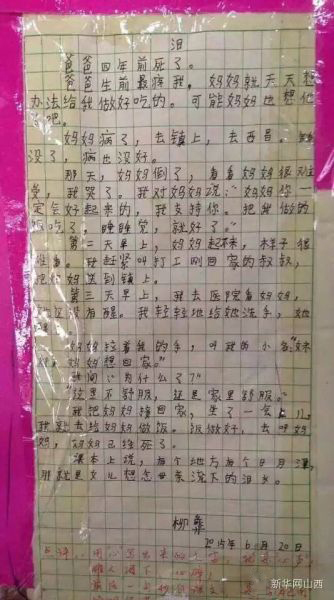 泪
爸爸四年前死了。
爸爸生前最疼我。妈妈就天天想
办法给我做好吃的。可能妈妈也想他
了吧。
妈妈病了,去镇上,去西昌。钱
没了,病也没好。
那天,妈妈倒了,看看妈妈很难
受,我哭了。我对妈妈说:“妈妈你一
定会好起来的,我支持你。把我做的
饭吃了,睡睡觉,就好了。”
第二天早上,妈妈起不来,样子很
难看。我赶紧叫打工刚回家的叔叔,
把妈妈送到镇上。
第三天早上,我去医院看妈妈,
她还没有醒。我轻轻地给她洗手,她
妈妈拉着我的手,叫我的小名:
妈妈想回家。”
我问:“为什么了?”
“这里不舒服,还是家里舒服。”
我把妈妈接回家,坐了一会儿,
我就去给妈妈做饭。饭做好,去叫妈
妈,妈妈已经死了。
课本上说,有个地方有个日月潭,
那就是女儿想念母亲流下的泪水。
柳彝
2015年6月20日
点评:用心写出来的
新华网山西